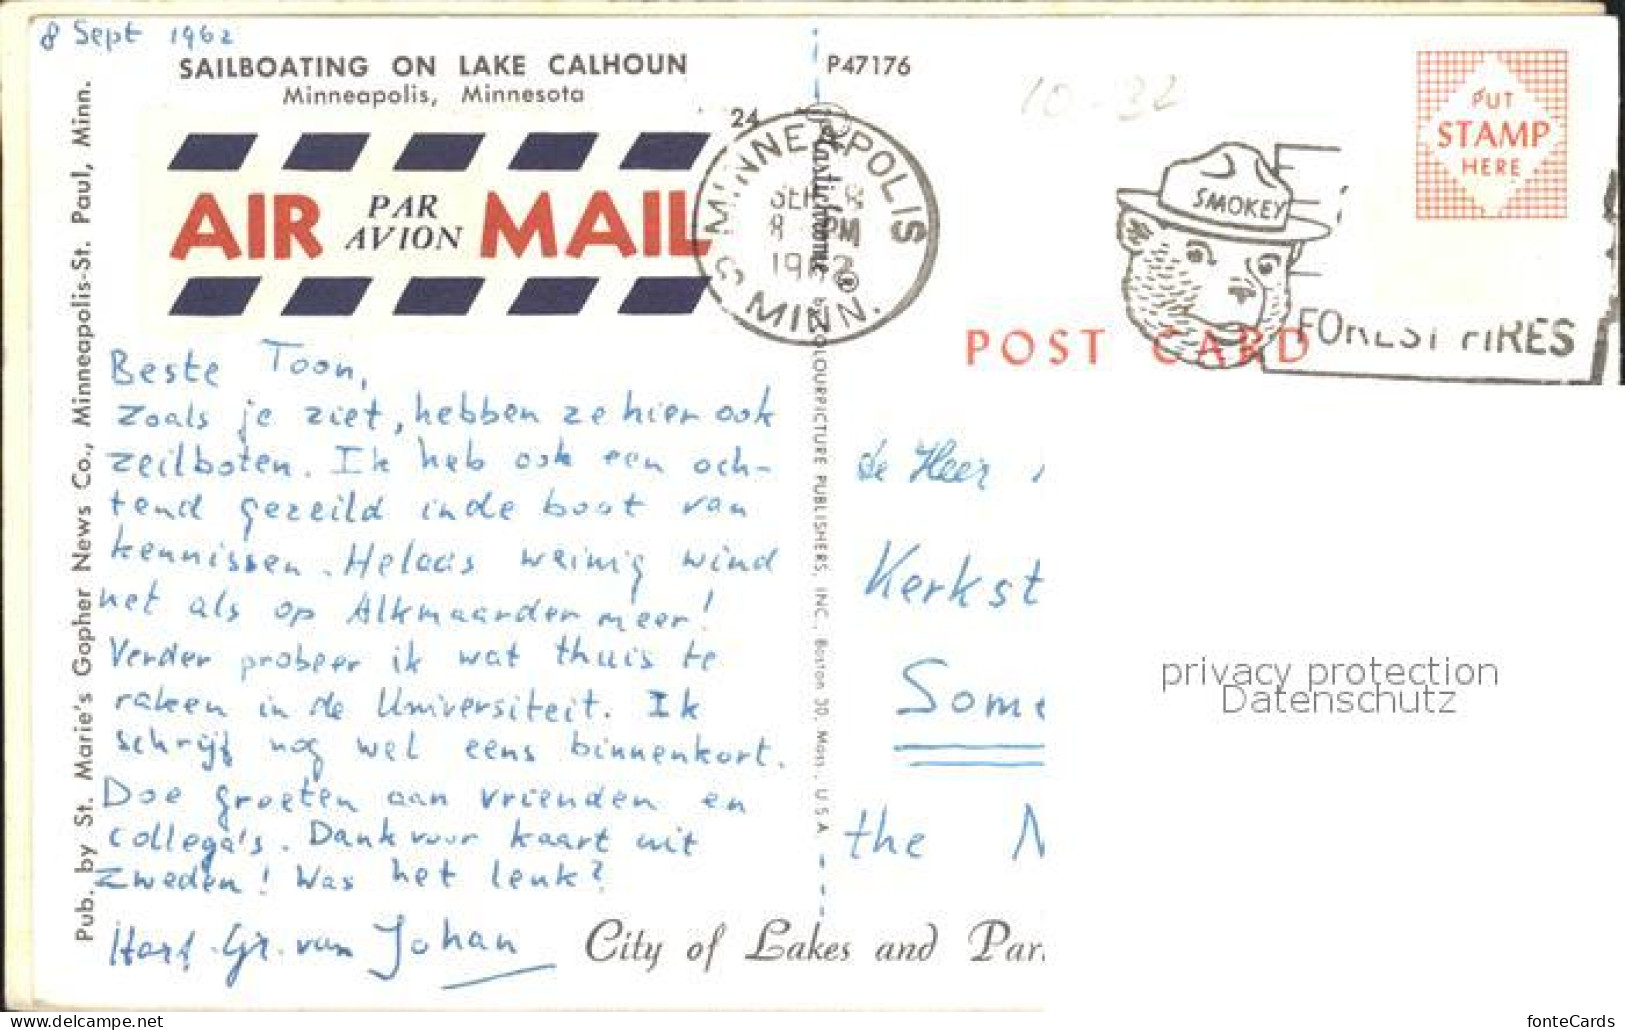 8 Sept 1962
SAILBOATING ON LAKE CALHOUN
Minneapolis, Minnesota
P47176
10-32
PUT
STAMP
HERE
24
AIR PAR AVION MAIL
MINNEAPOLIS
SEP 8
8 PM
1962
MINN.
SMOKEY
FOREST FIRES
POST CARD
Beste Toon,
Zoals je ziet, hebben ze hier ook
zeilboten. Ik heb ook een och-
tend gezeild in de boot van
kennissen. Helaas weinig wind
net als op Alkmaardermeer!
Verder probeer ik wat thuis te
raken in de Universiteit. Ik
schrijf nog wel eens binnenkort.
Doe groeten aan vrienden en
collega's. Dank voor kaart uit
Zweden! Was het leuk?
Hart. Gr. van Johan
de Heer
Kerkst
Some
the N
City of Lakes and Par
Pub. by St. Marie's Gopher News Co., Minneapolis-St. Paul, Minn.
Plastichrome ® by COLOURPICTURE PUBLISHERS, INC., Boston 30, Mass., U.S.A.
privacy protection
Datenschutz
www.delcampe.net
fonteCards